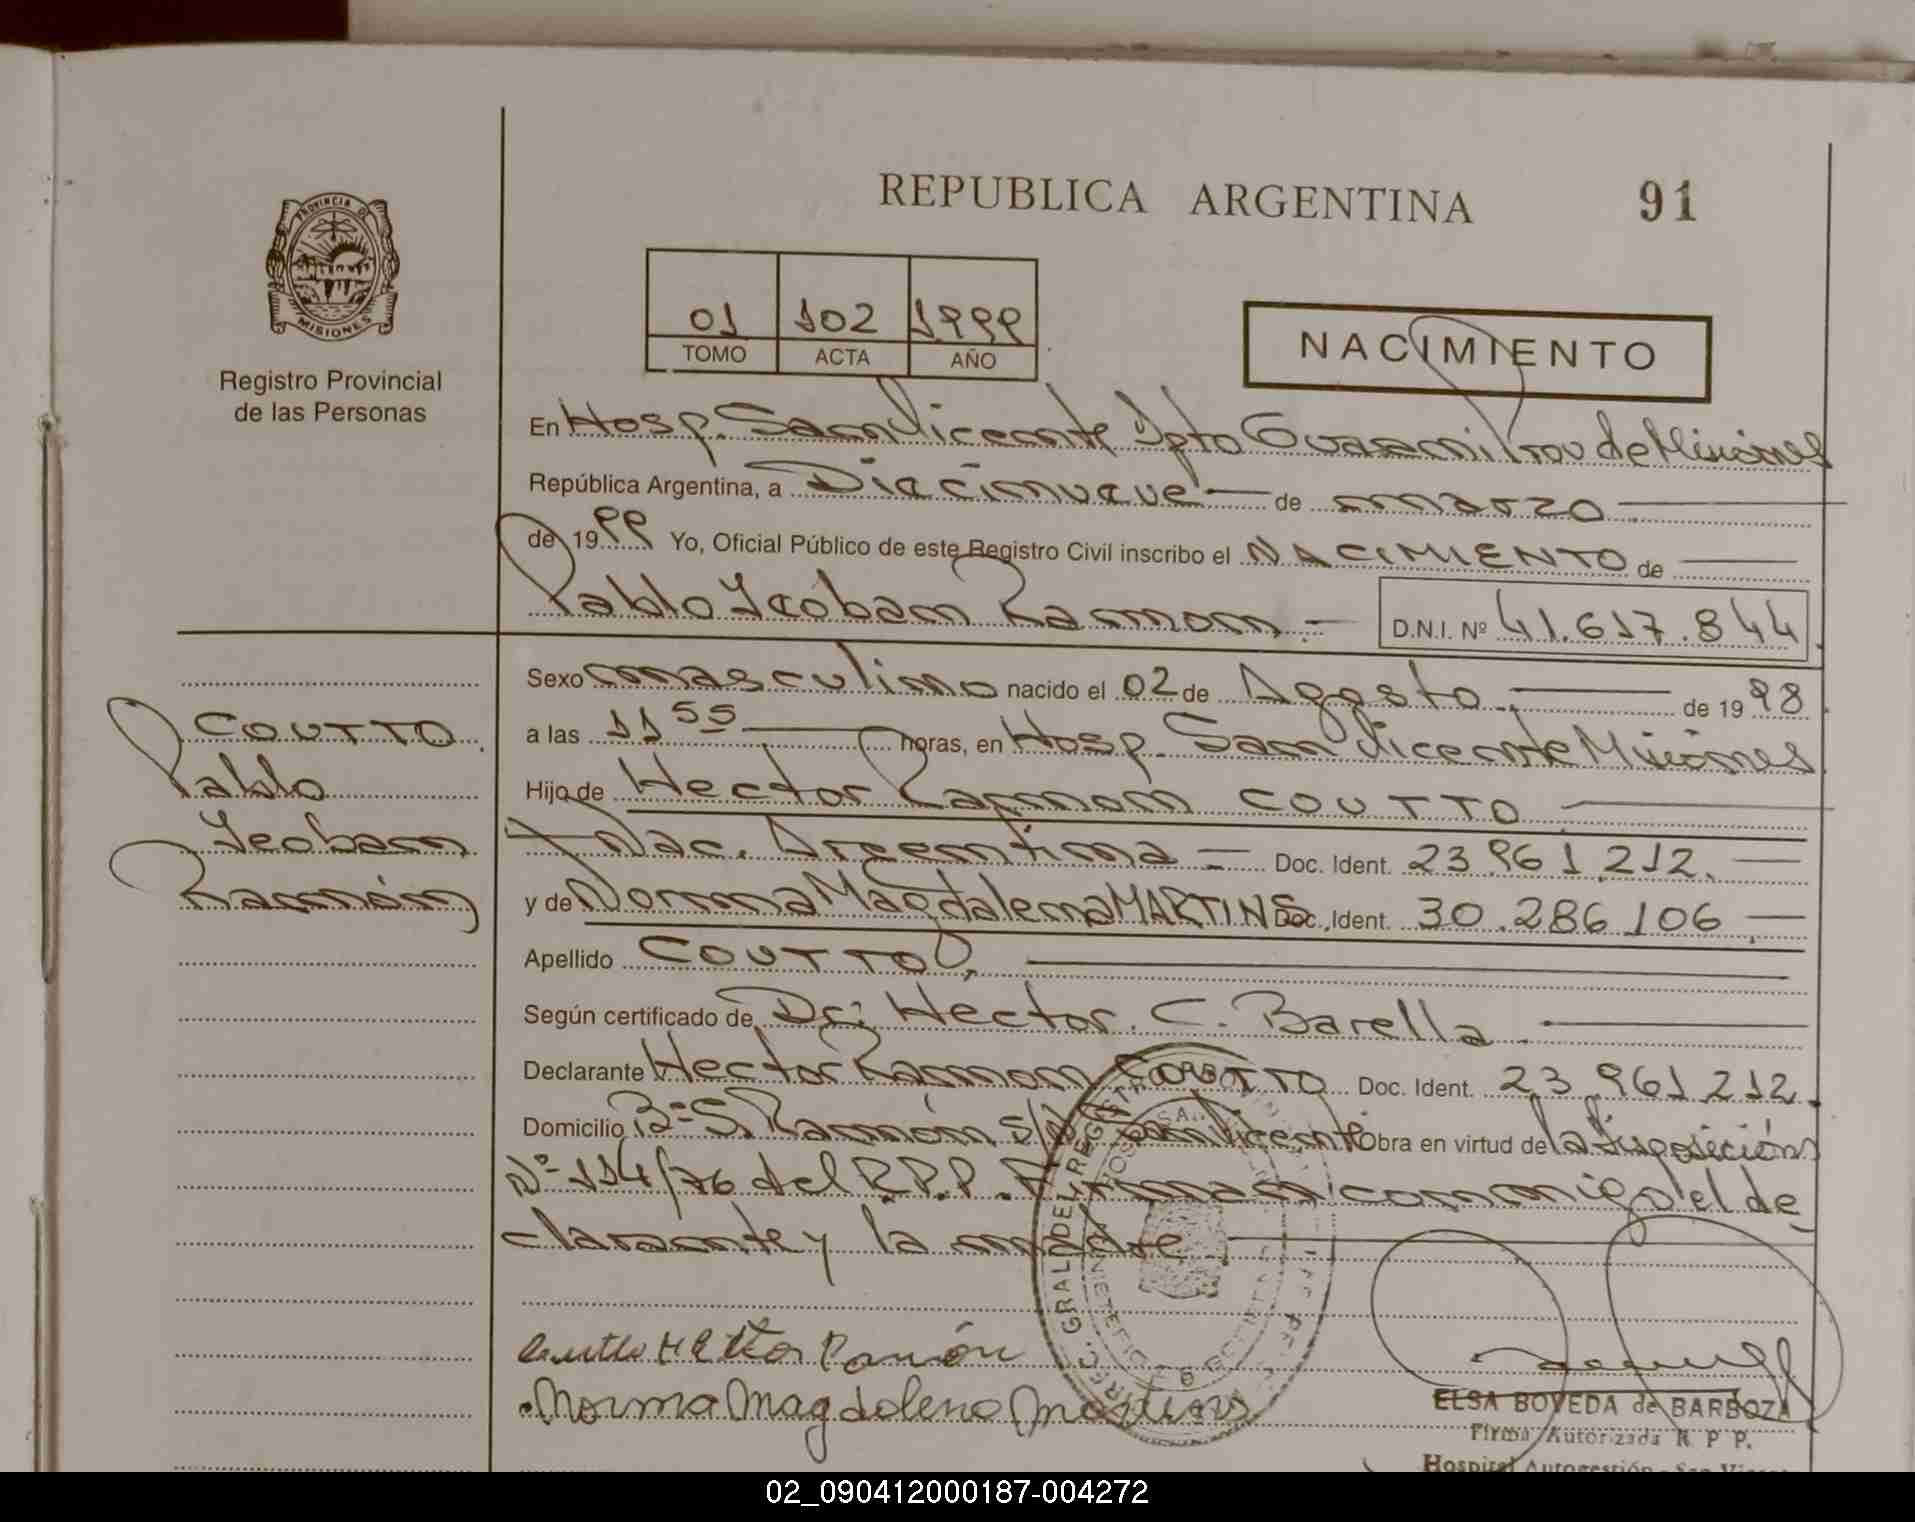 REPUBLICA ARGENTINA
91
PROVINCIA DE
MISIONES
Registro Provincial
de las Personas
01 102 1999
TOMO ACTA AÑO
NACIMIENTO
En Hosp. San Vicente Dpto Guarani Prov de Misiones
República Argentina, a Diecinueve de marzo
de 1999 Yo, Oficial Público de este Registro Civil inscribo el NACIMIENTO de
Pablo Jeoban Ramon.- D.N.I. Nº 41.617.844
Sexo masculino nacido el 02 de Agosto de 1998
a las 11 55 horas, en Hosp. San Vicente Misiones
Hijo de Hector Ramon COUTTO
Nac. Argentina Doc. Ident. 23.961.212.
y de Norma Magdalena MARTINS Doc. Ident. 30.286.106
Apellido COUTTO
Según certificado de Dr: Héctor. C. Barella
Declarante Hector Ramon COUTTO Doc. Ident. 23.961.212.
Domicilio Bº S. Ramón s/n San Vicente Obra en virtud de la Disposición
Nº 114/76 del R.P.P. Firman conmigo el de
clarante y la madre
COUTTO
Pablo
Jeoban
Ramón
Coutto Hector Ramón
Norma Magdalena Martins
ELSA BOVEDA de BARBOZA
Firma Autorizada R P P.
Hospital Autogestión - San Vicente
02_090412000187-004272